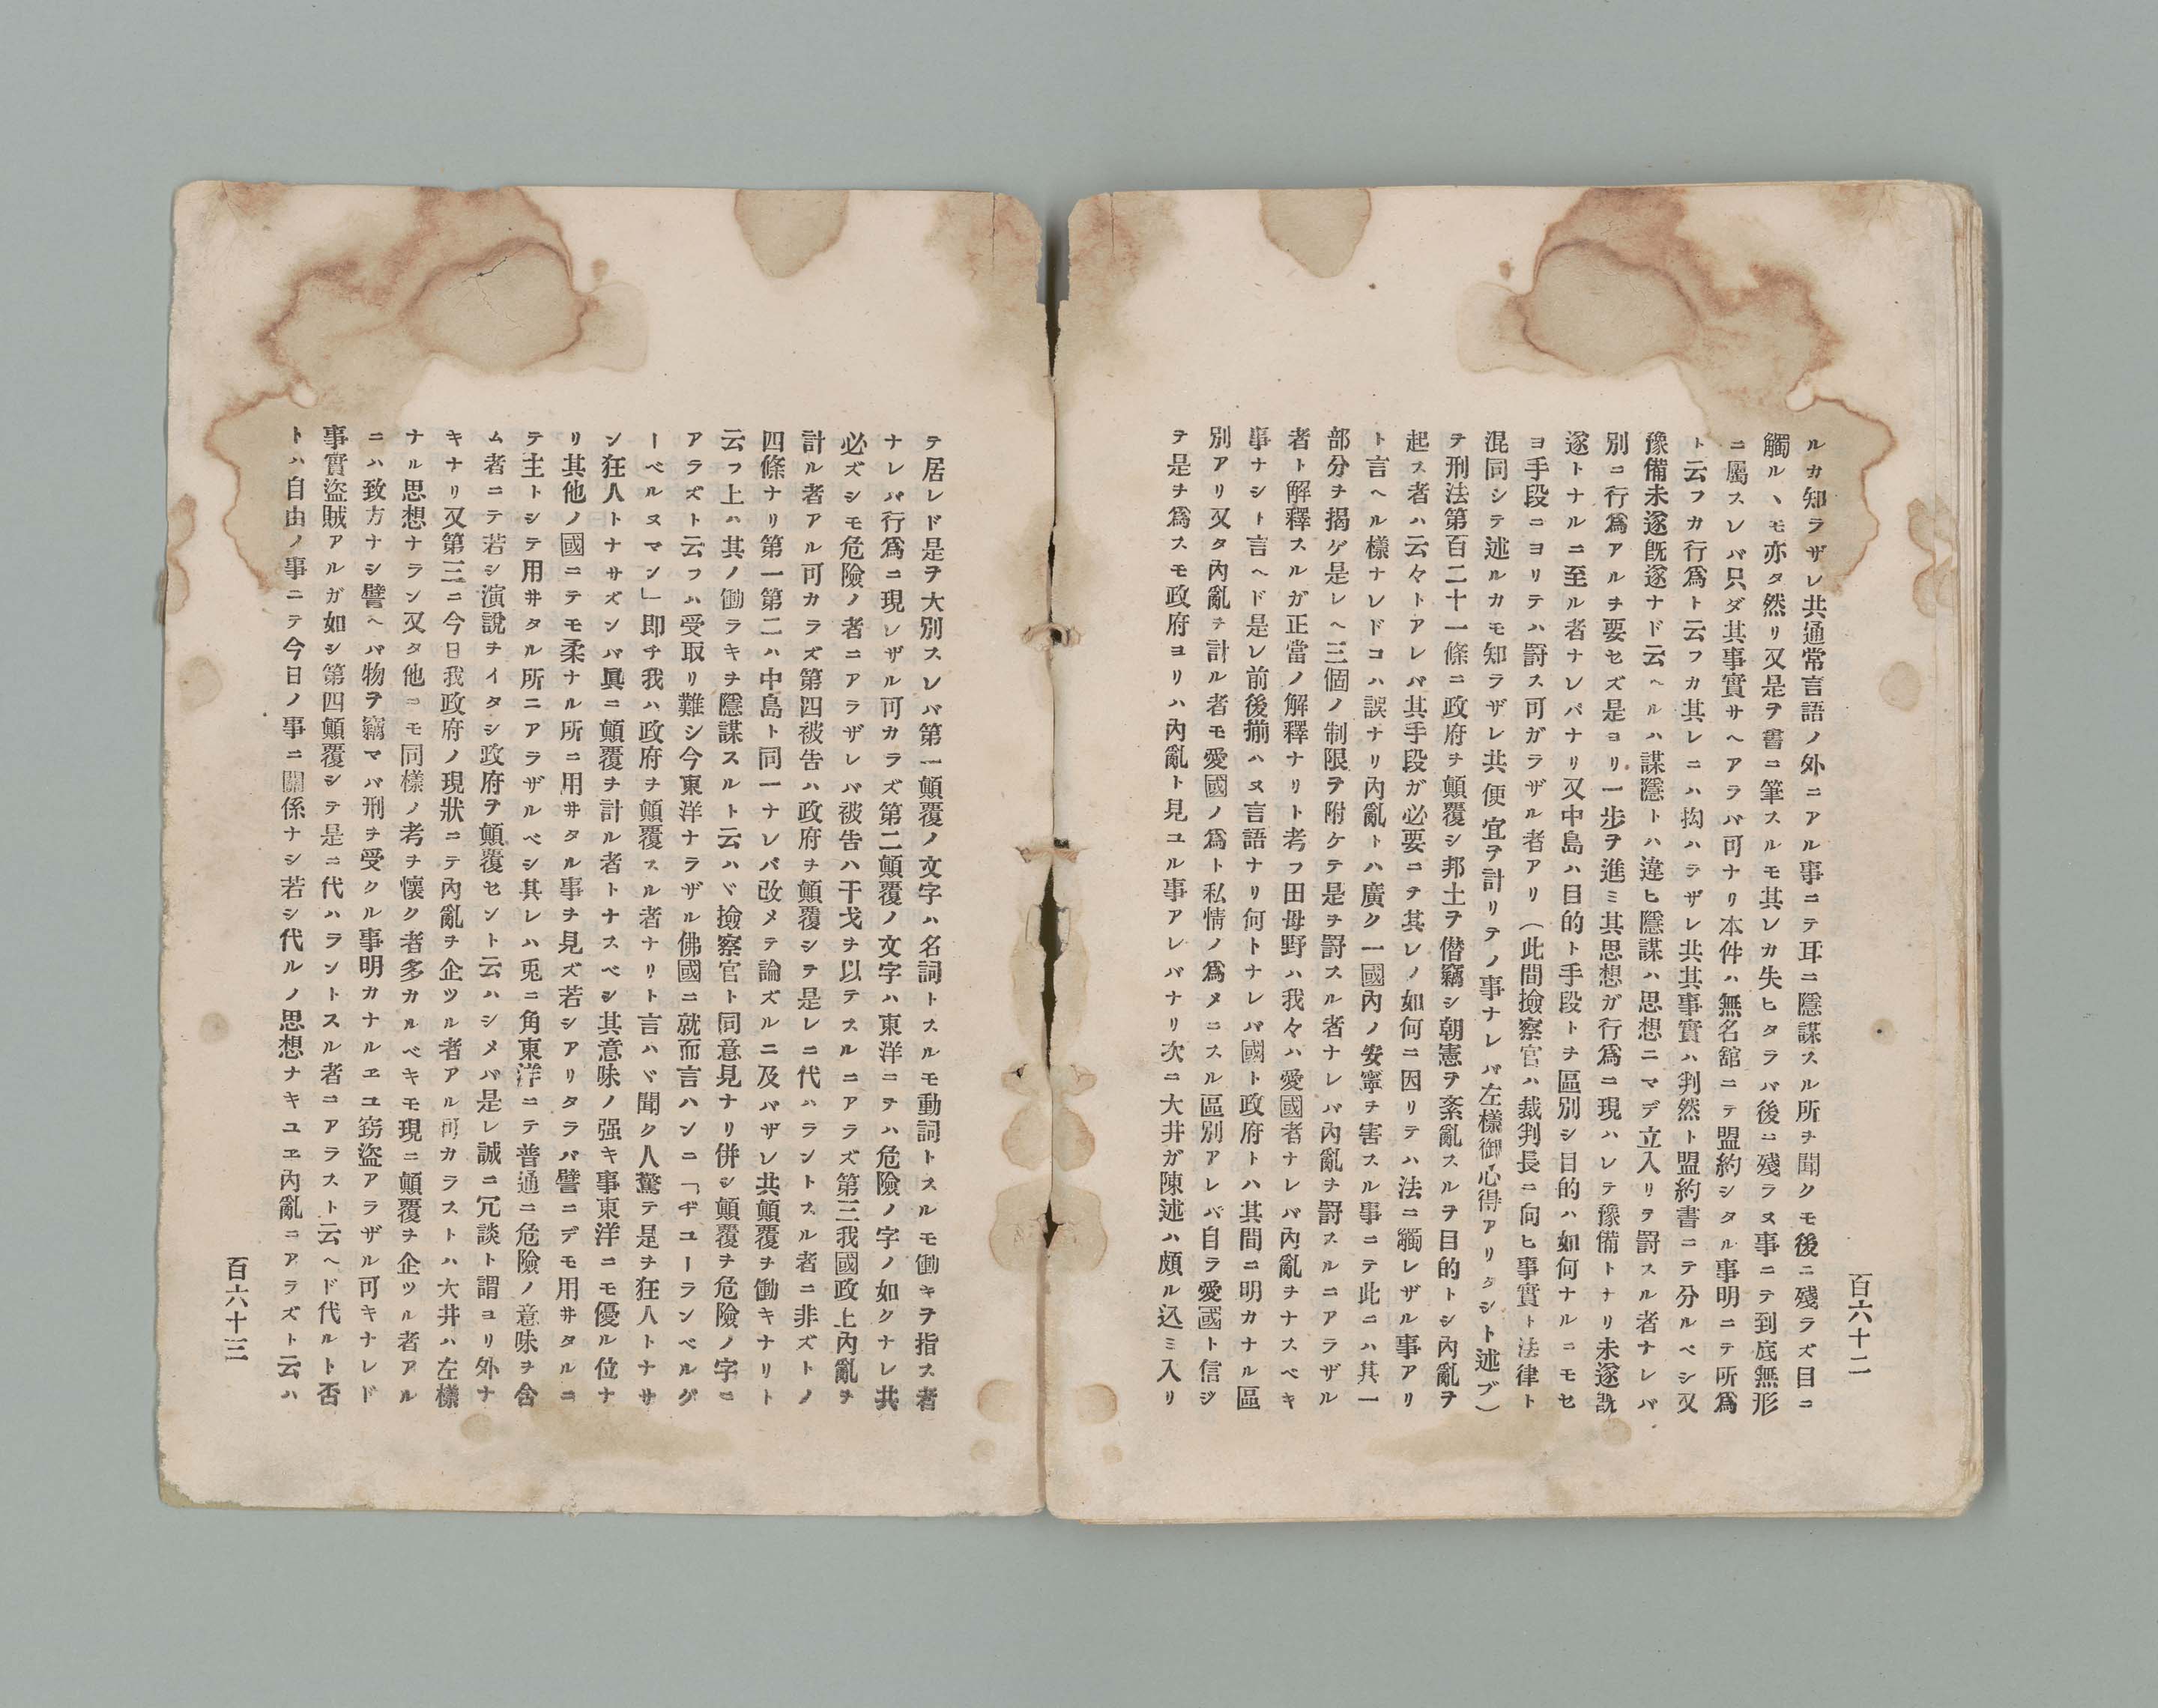 百六十二
ルカ知ラザレ共通常言語ノ外ニアル事ニテ耳ニ隱謀スル所ヲ聞クモ後ニ殘ラズ目ニ
觸ルヽモ亦タ然リ又是ヲ書ニ筆スルモ其レカ失ヒタラバ後ニ殘ラヌ事ニテ到底無形
ニ屬スレバ只ダ其事實サヘアラバ可ナリ本件ハ無名舘ニテ盟約シタル事明ニテ所爲
ト云フカ行爲ト云フカ其レニハ拘ハラザレ共其事實ハ判然ト盟約書ニテ分ルベシ又
豫備未遂旣遂ナド云ヘルハ謀隱トハ違ヒ隱謀ハ思想ニマデ立入リテ罸スル者ナレバ
別ニ行爲アルヲ要セズ是ヨリ一歩ヲ進ミ其思想ガ行爲ニ現ハレテ豫備トナリ未遂旣
遂トナルニ至ル者ナレバナリ又中島ハ目的ト手段トヲ區別シ目的ハ如何ナルニモセ
ヨ手段ニヨリテハ罸ス可ガラザル者アリ（此間撿察官ハ裁判長ニ向ヒ事實ト法律ト
混同シテ述ルカモ知ラザレ共便宜ヲ計リテノ事ナレバ左樣御心得アリタシト述ブ）
テ刑法第百二十一條ニ政府ヲ顚覆シ邦土ヲ僭竊シ朝憲ヲ紊亂スルヲ目的トシ內亂ヲ
起ス者ハ云々トアレバ其手段ガ必要ニテ其レノ如何ニ因リテハ法ニ觸レザル事アリ
ト言ヘル樣ナレドコハ誤ナリ內亂トハ廣ク一國內ノ安寧ヲ害スル事ニテ此ニハ其一
部分ヲ揭ゲ是レヘ三個ノ制限ヲ附ケテ是ヲ罸スル者ナレバ內亂ヲ罸スルニアラザル
者ト解釋スルガ正當ノ解釋ナリト考フ田母野ハ我々ハ愛國者ナレバ內亂ヲナスベキ
事ナシト言ヘド是レ前後揃ハヌ言語ナリ何トナレバ國ト政府トハ其間ニ明カナル區
別アリ又タ內亂ヲ計ル者モ愛國ノ爲ト私情ノ爲メニスル區別アレバ自ラ愛國ト信ジ
テ是ヲ爲スモ政府ヨリハ內亂ト見ユル事アレバナリ次ニ大井ガ陳述ハ頗ル込ミ入リ
テ居レド是ヲ大別スレバ第一顚覆ノ文字ハ名詞トスルモ動詞トスルモ働キヲ指ス者
ナレバ行爲ニ現レザル可カラズ第二顚覆ノ文字ハ東洋ニテハ危險ノ字ノ如クナレ共
必ズシモ危險ノ者ニアラザレバ被告ハ干戈ヲ以テスルニアラズ第三我國政上內亂ヲ
計ル者アル可カラズ第四被告ハ政府ヲ顚覆シテ是レニ代ハラントスル者ニ非ズトノ
四條ナリ第一第二ハ中島ト同一ナレバ改メテ論ズルニ及バザレ共顚覆ヲ働キナリト
云フ上ハ其ノ働ラキヲ隱謀スルト云ハヾ撿察官ト同意見ナリ併シ顚覆ヲ危險ノ字ニ
アラズト云フハ受取リ難シ今東洋ナラザル佛國ニ就而言ハンニ「ヂユーランベルグ
ーベルヌマン」即チ我ハ政府ヲ顚覆スル者ナリト言ハヾ聞ク人驚テ是ヲ狂人トナサ
ン狂人トナサズンバ眞ニ顚覆ヲ計ル者トナスベシ其意味ノ强キ事東洋ニモ優ル位ナ
リ其他ノ國ニテモ柔ナル所ニ用ヰタル事ヲ見ズ若シアリタラバ譬ニデモ用ヰタルニ
テ主トシテ用ヰタル所ニアラザルベシ其レハ兎ニ角東洋ニテ普通ニ危險ノ意味ヲ含
ム者ニテ若シ演說ヲイタシ政府ヲ顚覆セント云ハシメバ是レ誠ニ冗談ト謂ヨリ外ナ
キナリ又第三ニ今日我政府ノ現狀ニテ內亂ヲ企ツル者アル可カラストハ大井ハ左樣
ナル思想ナラン又タ他ニモ同樣ノ考ヲ懷ク者多カルベキモ現ニ顚覆ヲ企ツル者アル
ニハ致方ナシ譬ヘバ物ヲ竊マバ刑ヲ受クル事明カナルヱユ窃盜アラザル可キナレド
事實盜賊アルガ如シ第四顚覆シテ是ニ代ハラントスル者ニアラスト云ヘド代ルト否
トハ自由ノ事ニテ今日ノ事ニ關係ナシ若シ代ルノ思想ナキユヱ內亂ニアラズト云ハ
百六十三